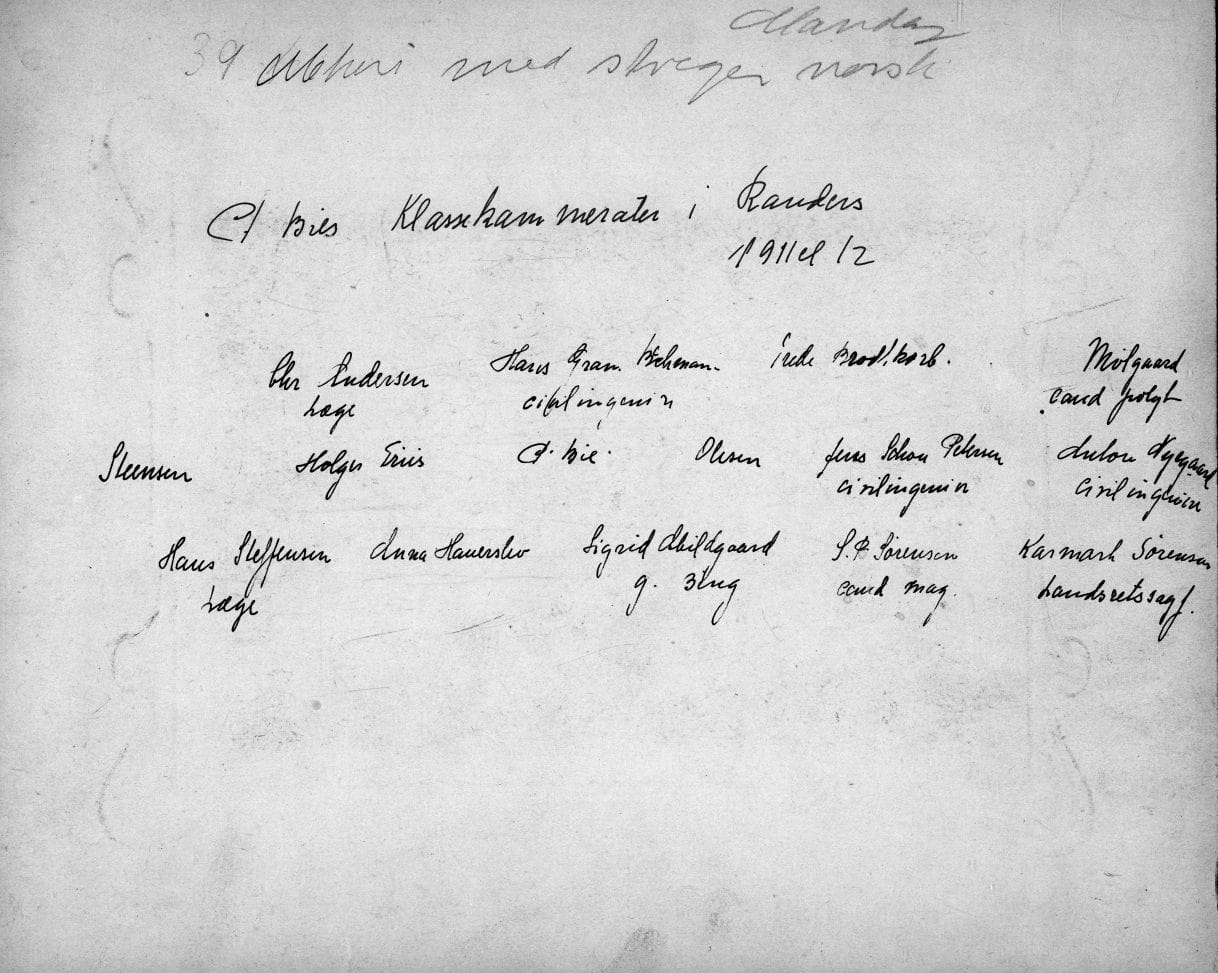 Mandag
39 med norsk
C. Bies Klassekammerater i Randers
1911 el 12
Chr Andersen Hans Gram civilingeniør Mølgaard
Læge civilingeniør cand polyt
Steensen Holger Friis C. Bie. Olesen Jens Schou Petersen Anton Nyegaard
civilingeniør civilingeniør
Hans Steffensen Anna Haverslev Sigrid Abildgaard S. P. Sørensen Karmark Sørensen
Læge g. cand mag. Landsretssagf.